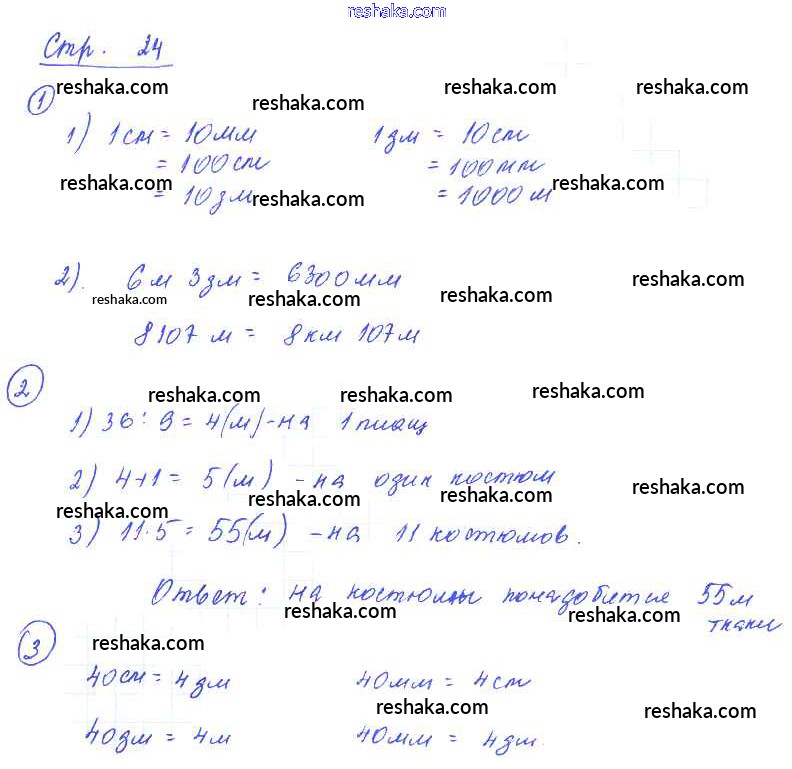 reshaka.com
Стр. 24
reshaka.com reshaka.com reshaka.com reshaka.com
1
1) 1см = 10мм 1дм = 10см
= 100см = 100мм
reshaka.com reshaka.com reshaka.com
= 10дм = 1000м
2). 6м 3дм = 6300мм
reshaka.com reshaka.com reshaka.com reshaka.com
8107 м = 8км 107м
2
reshaka.com reshaka.com reshaka.com
1) 36 : 9 = 4(м) - на 1 плащ
2) 4+1 = 5(м) - на один костюм
reshaka.com reshaka.com reshaka.com reshaka.com
3) 11·5 = 55(м) - на 11 костюмов.
Ответ: на костюмы понадобится 55м
reshaka.com reshaka.com
ткани
3
reshaka.com
40см = 4дм 40мм = 4см
reshaka.com reshaka.com
40дм = 4м 40мм = 4дм.